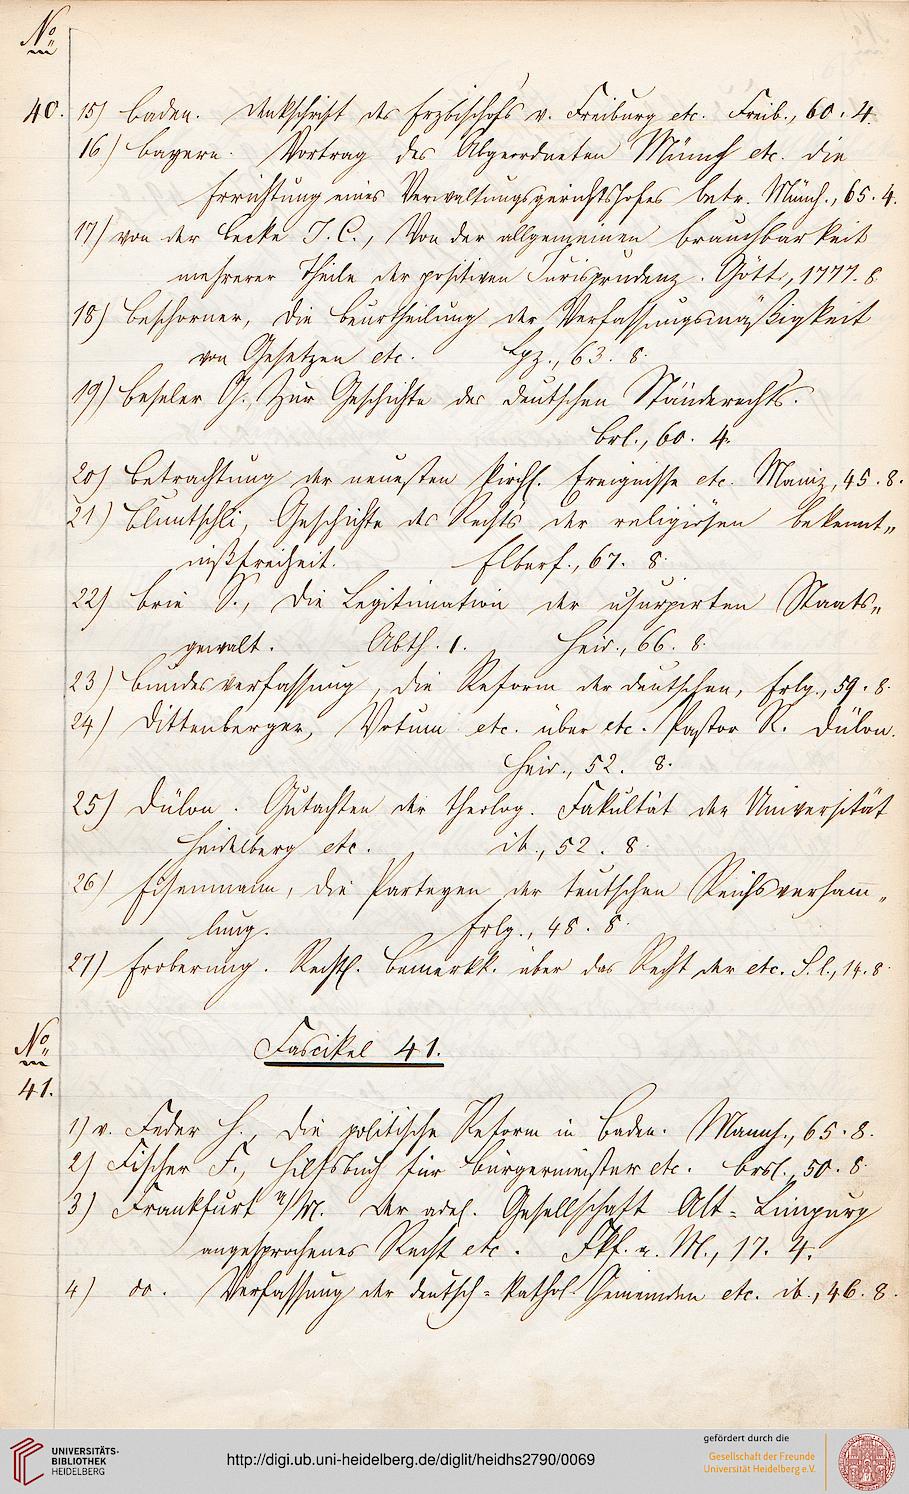 No
40. 15) Baden. Denkschrift des Erzbischofs v. Freiburg etc. Freib., 60. 4.
16) Bayern. Vortrag des Abgeordneten Münch etc. die
Errichtung eines Verwaltungsgerichtshofes betr. Münch., 65. 4.
17) von der Becke J. C., Von der allgemeinen Brauchbarkeit
mehrerer Theile der positiven Jurisprudenz. Gött., 1777. 8.
18) Beschorner, Die Beurtheilung der Verfassungsmäßigkeit
von Gesetzen etc. Lpz., 63. 8.
19) Beseler G., Zur Geschichte des deutschen Ständerechts.
Brl., 60. 4.
20) Betrachtung der neuesten kirchl. Ereignisse etc. Mainz, 45. 8.
21) Bluntschli, Geschichte des Rechts der religiösen Bekennt„
nißfreiheit. Elberf., 67. 8.
22) Brie S., Die Legitimation der usurpirten Staats„
gewalt. Abth. 1. Heid., 66. 8.
23) Bundesverfassung, die Reform der deutschen, Erlg., 59. 8.
24) Dittenberger, Votum etc. über etc. Pastor R. Dülon.
Heid., 52. 8.
25) Dülon. Gutachten der theolog. Fakultät der Universität
Heidelberg etc. ib., 52. 8.
26) Eisenmann, Die Parteyen der teutschen Reichsversam„
lung. Erlg., 48. 8.
27) Eroberung. Rechtl. Bemerkk. über das Recht der etc. S. l., 14. 8.
No
41.
Fascikel 41.
1) v. Feder H., Die politische Reform in Baden. Mannh., 65. 8.
2) Fischer F., Hilfsbuch für Bürgermeister etc. Brsl., 50. 8.
3) Frankfurt a/M. Der adel. Gesellschaft Alt-Limpurg
angesprochenes Recht etc. Fkf. a. M., 17. 4.
4) do. Verfassung der deutsch-kathol. Gemeinden etc. ib., 46. 8.
UNIVERSITÄTS-
BIBLIOTHEK
HEIDELBERG
http://digi.ub.uni-heidelberg.de/diglit/heidhs2790/0069
gefördert durch die
Gesellschaft der Freunde
Universität Heidelberg e.V.